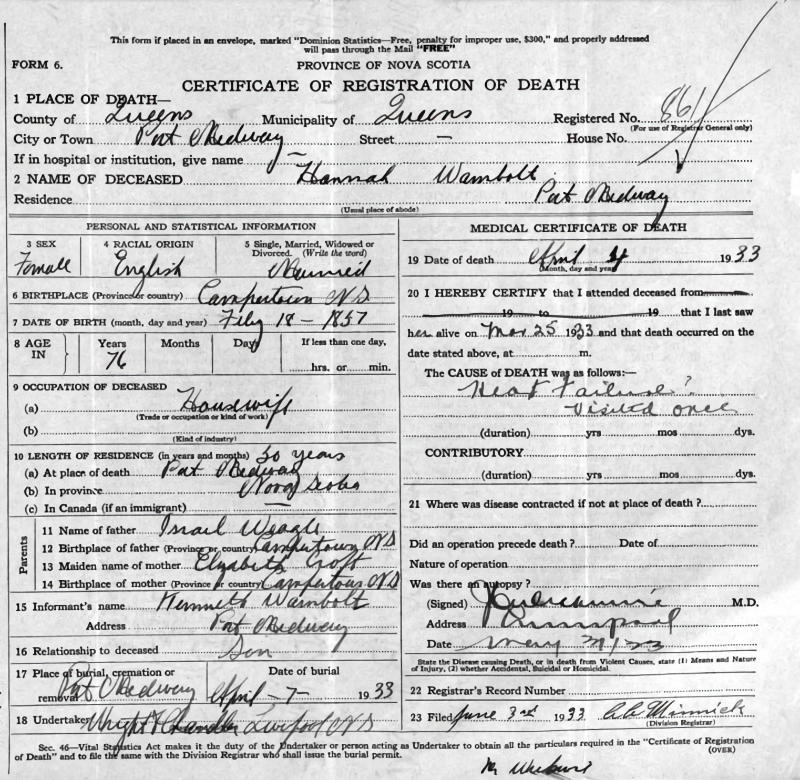 This form if placed in an envelope, marked "Dominion Statistics—Free, penalty for improper use, $300," and properly addressed
will pass through the Mail "FREE"
FORM 6. PROVINCE OF NOVA SCOTIA
CERTIFICATE OF REGISTRATION OF DEATH
1 PLACE OF DEATH—
County of Queens Municipality of Queens Registered No. 861
(For use of Registrar General only)
City or Town Port Medway Street — House No.
If in hospital or institution, give name —
2 NAME OF DECEASED Hannah Wambolt
Residence Port Medway
(Usual place of abode)
PERSONAL AND STATISTICAL INFORMATION
3 SEX 4 RACIAL ORIGIN 5 Single, Married, Widowed or Divorced. (Write the word)
Female English Married
6 BIRTHPLACE (Province or country) Campertown N S
7 DATE OF BIRTH (month, day and year) Feby 18 - 1857
8 AGE IN Years Months Days If less than one day,
76 hrs. or min.
9 OCCUPATION OF DECEASED
(a) Housewife
(Trade or occupation or kind of work)
(b)
(Kind of industry)
10 LENGTH OF RESIDENCE (in years and months) 50 years
(a) At place of death Port Medway
(b) In province Nova Scotia
(c) In Canada (if an immigrant) —
Parents
11 Name of father Israel Weagle
12 Birthplace of father (Province or country) Campertown N S
13 Maiden name of mother Elizabeth Croft
14 Birthplace of mother (Province or country) Campertown N S
15 Informant's name Kenneth Wambolt
Address Port Medway
16 Relationship to deceased Son
17 Place of burial, cremation or removal Date of burial
Port Medway April - 7 - 1933
18 Undertaker Wright & Chandler Liverpool N S
MEDICAL CERTIFICATE OF DEATH
19 Date of death April 4 1933
(Month, day and year)
20 I HEREBY CERTIFY that I attended deceased from
19 to 19 that I last saw
her alive on Mar 25 1933 and that death occurred on
date stated above, at m.
The CAUSE of DEATH was as follows:—
Heart Failure?
Visited once
(duration) yrs mos dys.
CONTRIBUTORY
(duration) yrs mos dys.
21 Where was disease contracted if not at place of death ?
Did an operation precede death ? Date of
Nature of operation
Was there an autopsy ?
(Signed) M.D.
Address
Date May
State the Disease causing Death, or in death from Violent Causes, state (1) Means and Nature
of Injury, (2) whether Accidental, Suicidal or Homicidal.
22 Registrar's Record Number
23 Filed June 3rd 1933
(Division Registrar)
Sec. 46—Vital Statistics Act makes it the duty of the Undertaker or person acting as Undertaker to obtain all the particulars required in the "Certificate of Registration
of Death" and to file the same with the Division Registrar who shall issue the burial permit. (OVER)